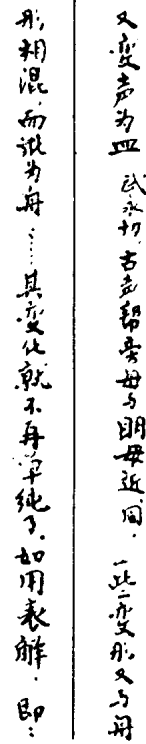 又变声为皿 武永切，古声帮旁母与明母近同，一些二变形又与舟
形相混，而讹为舟……其变化就不再单纯了。如用表解，即：